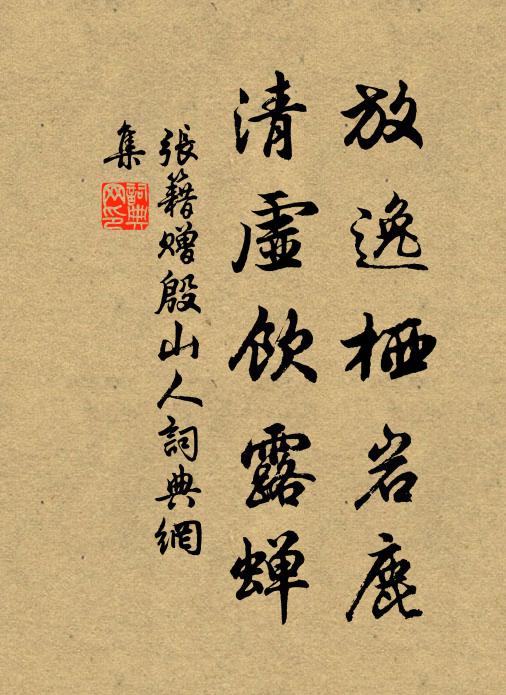 放逸栖岩鹿
清虛飲露蝉
張籍赠殷山人詞典網
集
詞典
网印